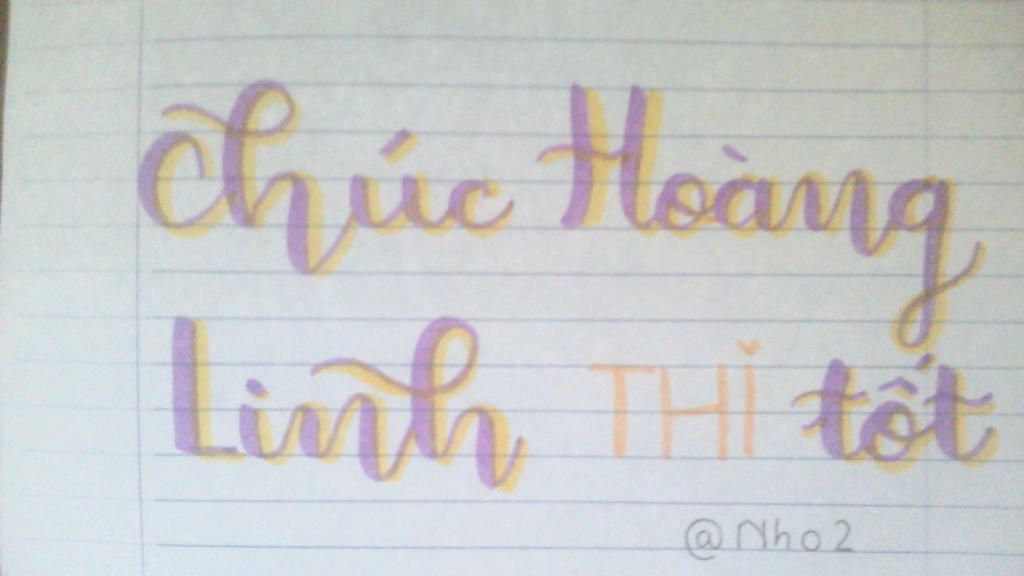 Chúc Hoàng
Linh THI tốt
@Nho2